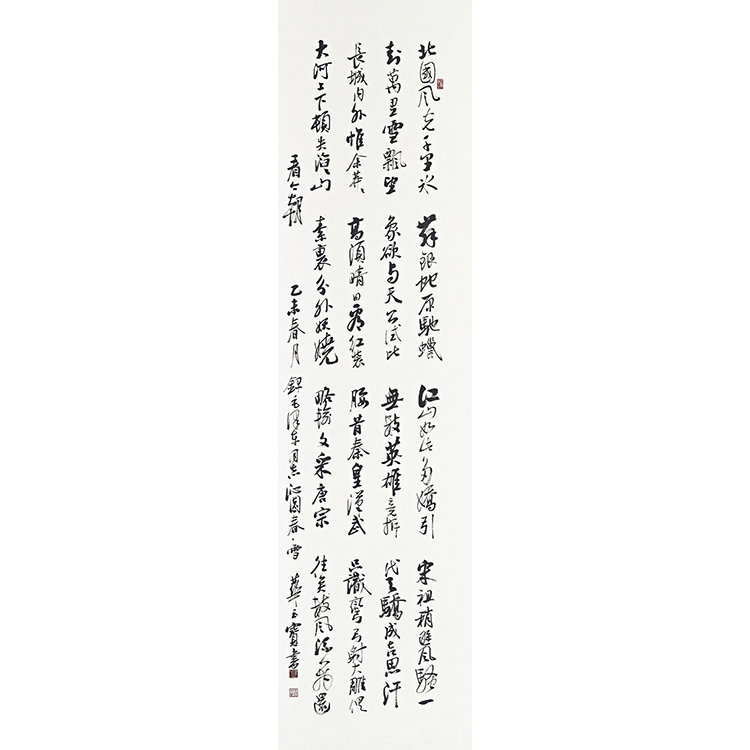 北國风光千里冰
封萬里雪飄望
長城内外惟余莽〻
大河上下頓失滔〻山
舞銀蛇原馳蠟
象欲与天公试比
高須晴日看红装
素裹分外妖嬈
江山如此多嬌引
無数英雄竞折
腰昔秦皇漢武
略输文采唐宗
宋祖稍逊风騷一
代天驕成吉思汗
只識彎弓射大雕俱
往矣数风流人物還
看今朝
乙未春月 錄毛泽东同志沁园春·雪 書